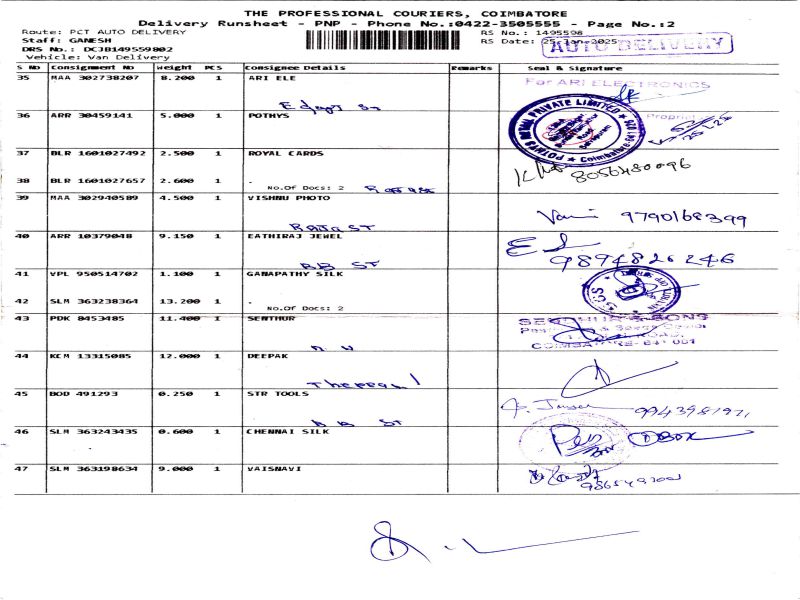 THE PROFESSIONAL COURIERS, COIMBATORE
Delivery Runsheet - PNP - Phone No.:0422-3505555 - Page No.:2
Route: PCT AUTO DELIVERY
RS No.: 1495598
Staff: GANESH
RS Date: 25-Jan-2025
AUTO DELIVERY
DRS No.: DCJB149559802
Vehicle: Van Delivery
S No Consignment No Weight PCS Consignee Details Remarks Seal & Signature
35 MAA 302738207 8.200 1 ARI ELE
For ARI ELECTRONICS
36 ARR 30459141 5.000 1 POTHYS
POTHYS RETAIL PRIVATE LIMITED
Coimbatore
Proprietor
37 BLR 1601027492 2.500 1 ROYAL CARDS
8056480096
38 BLR 1601027657 2.600 1 .
No.Of Docs: 2
39 MAA 302940589 4.500 1 VISHNU PHOTO
Raja ST
9790168399
40 ARR 10379048 9.150 1 EATHIRAJ JEWEL
BB ST
9894826246
41 VPL 950514702 1.100 1 GANAPATHY SILK
42 SLM 363238364 13.200 1 .
No.Of Docs: 2
43 PDK 8453485 11.400 1 SENTHUR
COIMBATORE-641 001
44 KCM 13315085 12.000 1 DEEPAK
45 BOD 491293 0.250 1 STR TOOLS
46 SLM 363243435 0.600 1 CHENNAI SILK
47 SLM 363198634 9.000 1 VAISNAVI